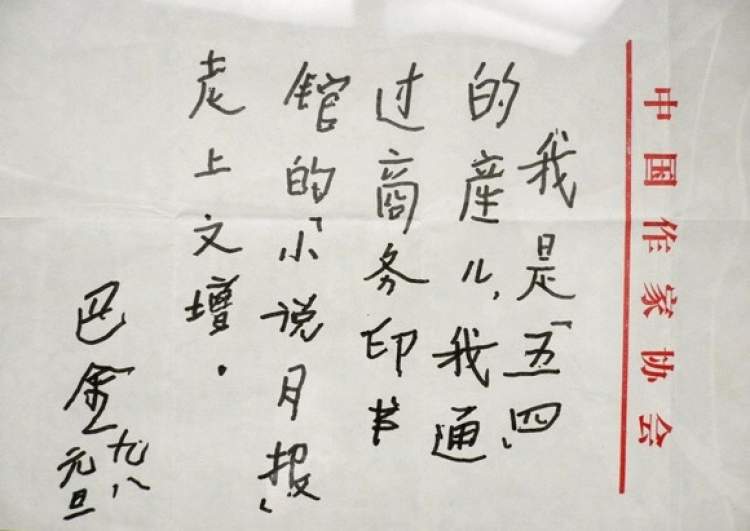 中国作家协会
我是「五四」
的産儿,我通
过商务印书
馆的「小说月报」
走上文壇.
巴金
九八
元旦